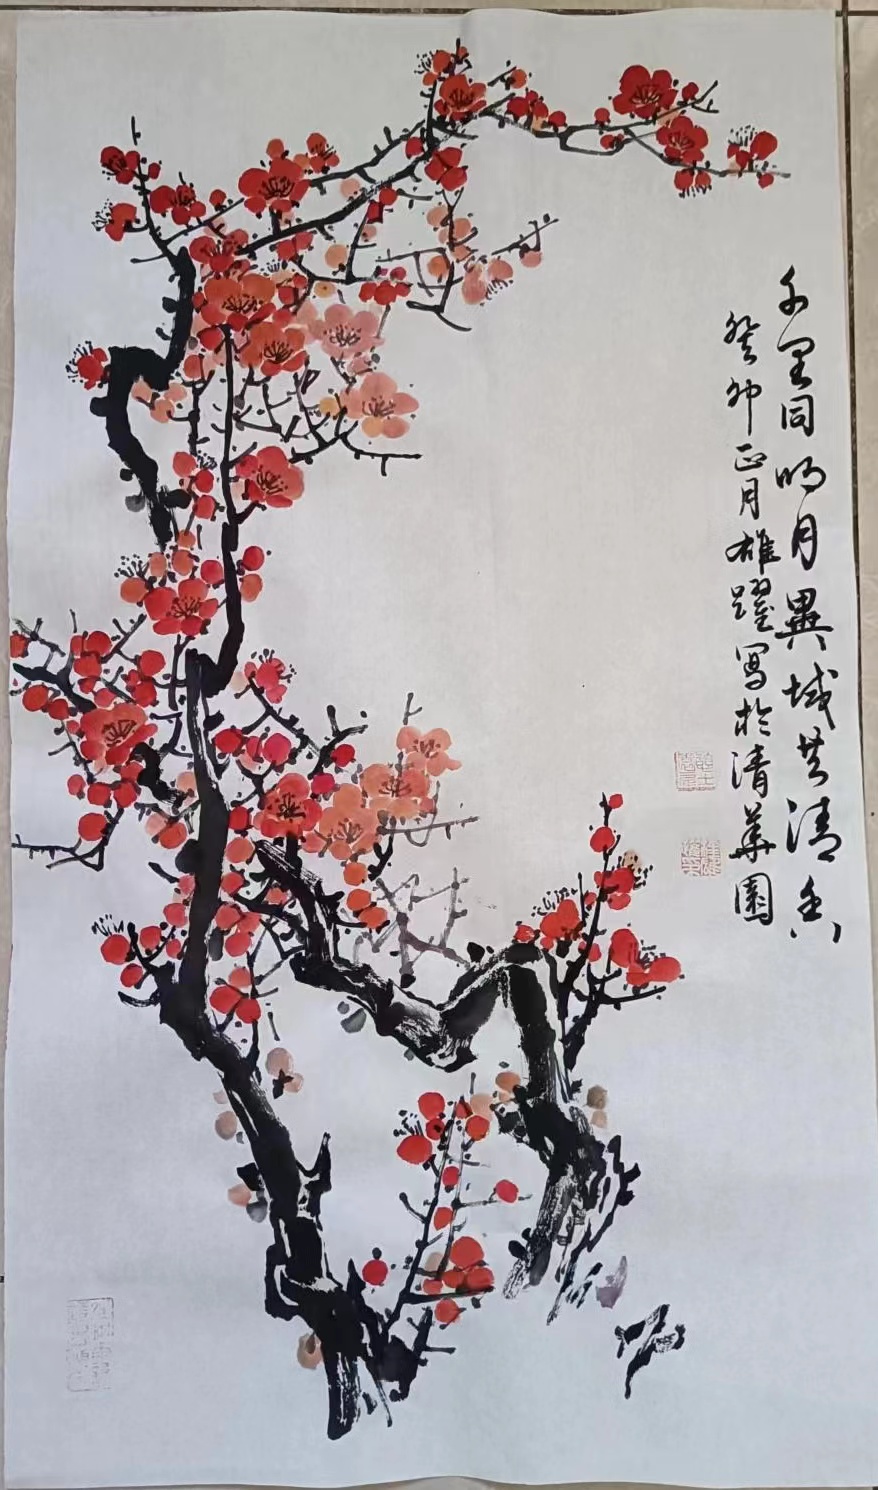 千里同明月異域共清香
癸卯正月雄躍写於清華園